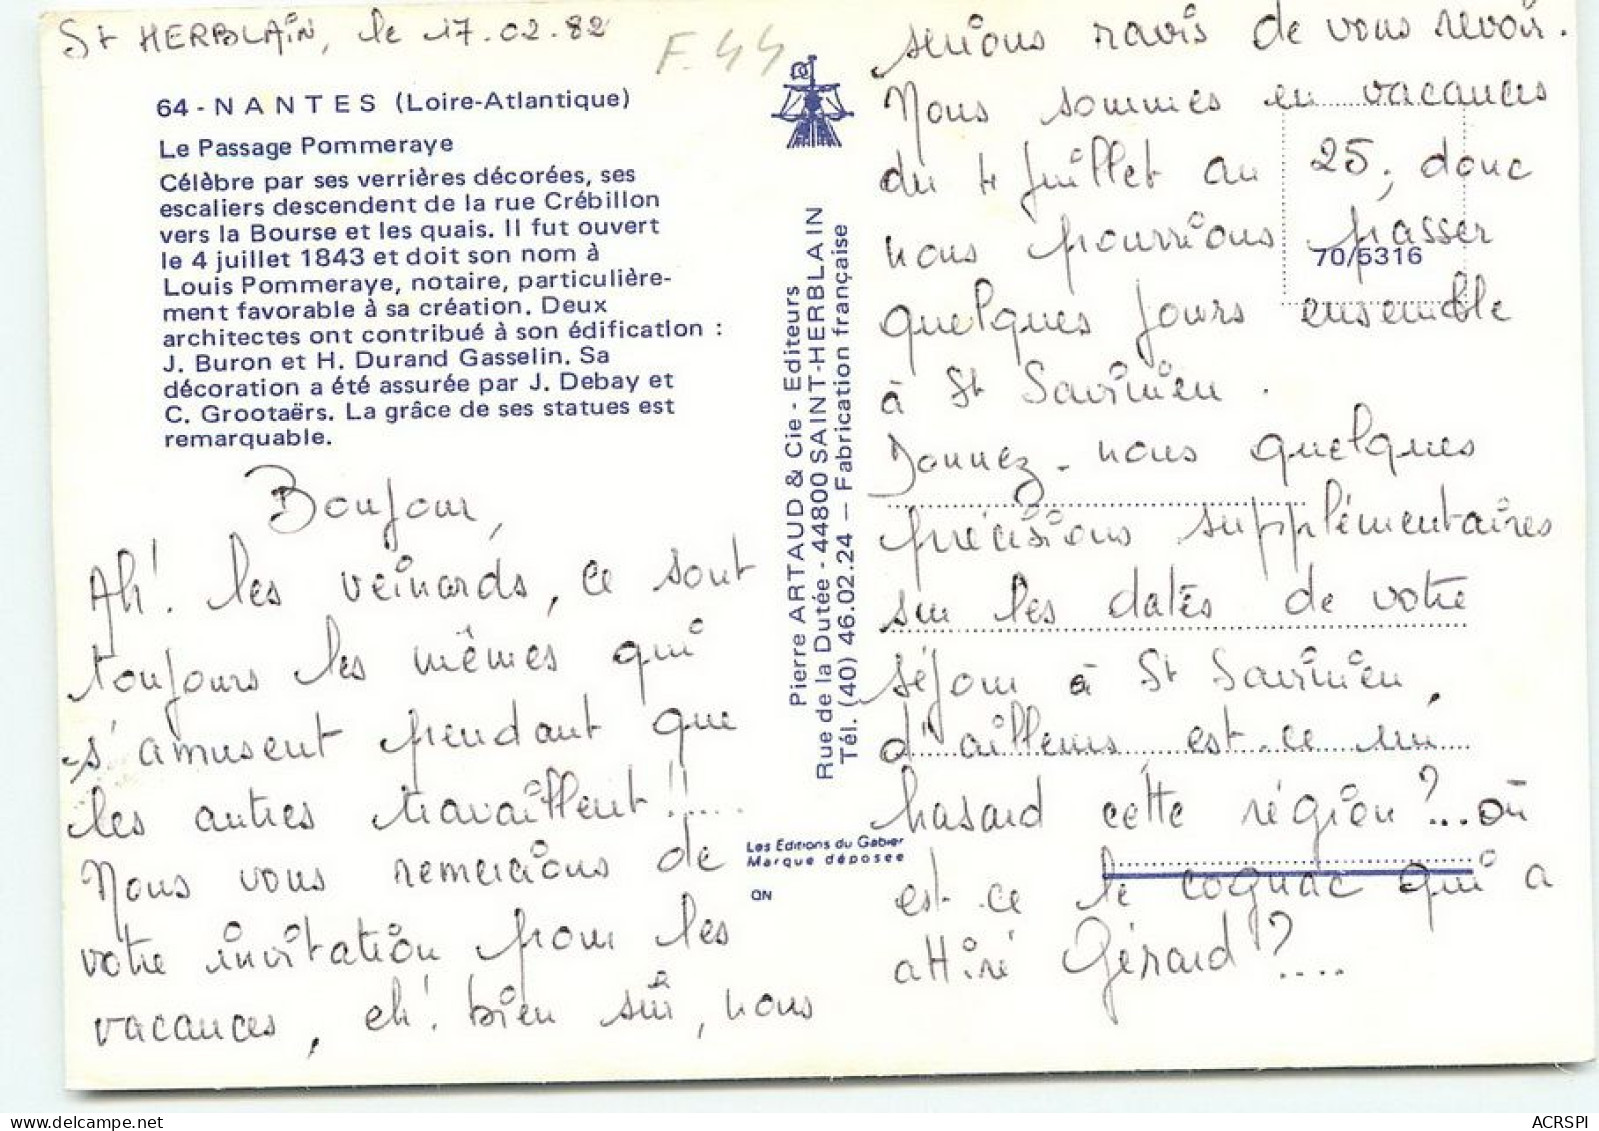 St HERBLAIN, le 17.02.82
F.44
64 - NANTES (Loire-Atlantique)
Le Passage Pommeraye
Célèbre par ses verrières décorées, ses
escaliers descendent de la rue Crébillon
vers la Bourse et les quais. Il fut ouvert
le 4 juillet 1843 et doit son nom à
Louis Pommeraye, notaire, particulière-
ment favorable à sa création. Deux
architectes ont contribué à son édification :
J. Buron et H. Durand Gasselin. Sa
décoration a été assurée par J. Debay et
C. Grootaërs. La grâce de ses statues est
remarquable.
Bonjour,
Ah! les veinards, ce sont
toujours les mêmes qui
s'amusent pendant que
les autres travaillent!!.....
Nous vous remercions de
votre invitation pour les
vacances, eh! bien sûr, nous
Pierre ARTAUD & Cie - Editeurs
Rue de la Dutée - 44800 SAINT-HERBLAIN
Tél. (40) 46.02.24 — Fabrication française
Les Editions du Gabier
Marque déposée
QN
serions ravis de vous revoir.
Nous sommes en vacances
du 4 juillet au 25, donc
nous pourrions passer
70/5316
quelques jours ensemble
à St Savinien.
Donnez-nous quelques
précisions supplémentaires
sur les dates de votre
séjour à St Savinien,
d'ailleurs est-ce un
hasard cette région?... où
est-ce le cognac qui a
attiré Gérard?....
ACRSPI